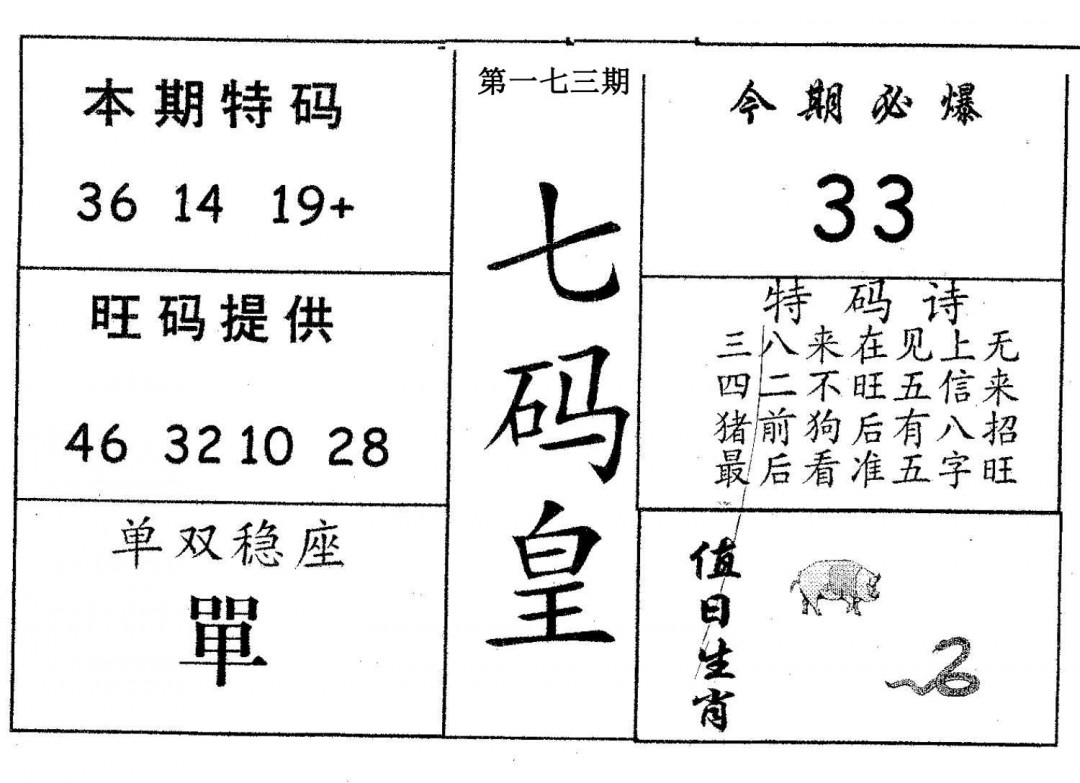 本期特码
36 14 19+
旺码提供
46 32 10 28
单双稳座
單
第一七三期
七码皇
今期必爆
33
特码诗
三八来在见上无
四二不旺五信来
猪前狗后有八招
最后看准五字旺
值日生肖